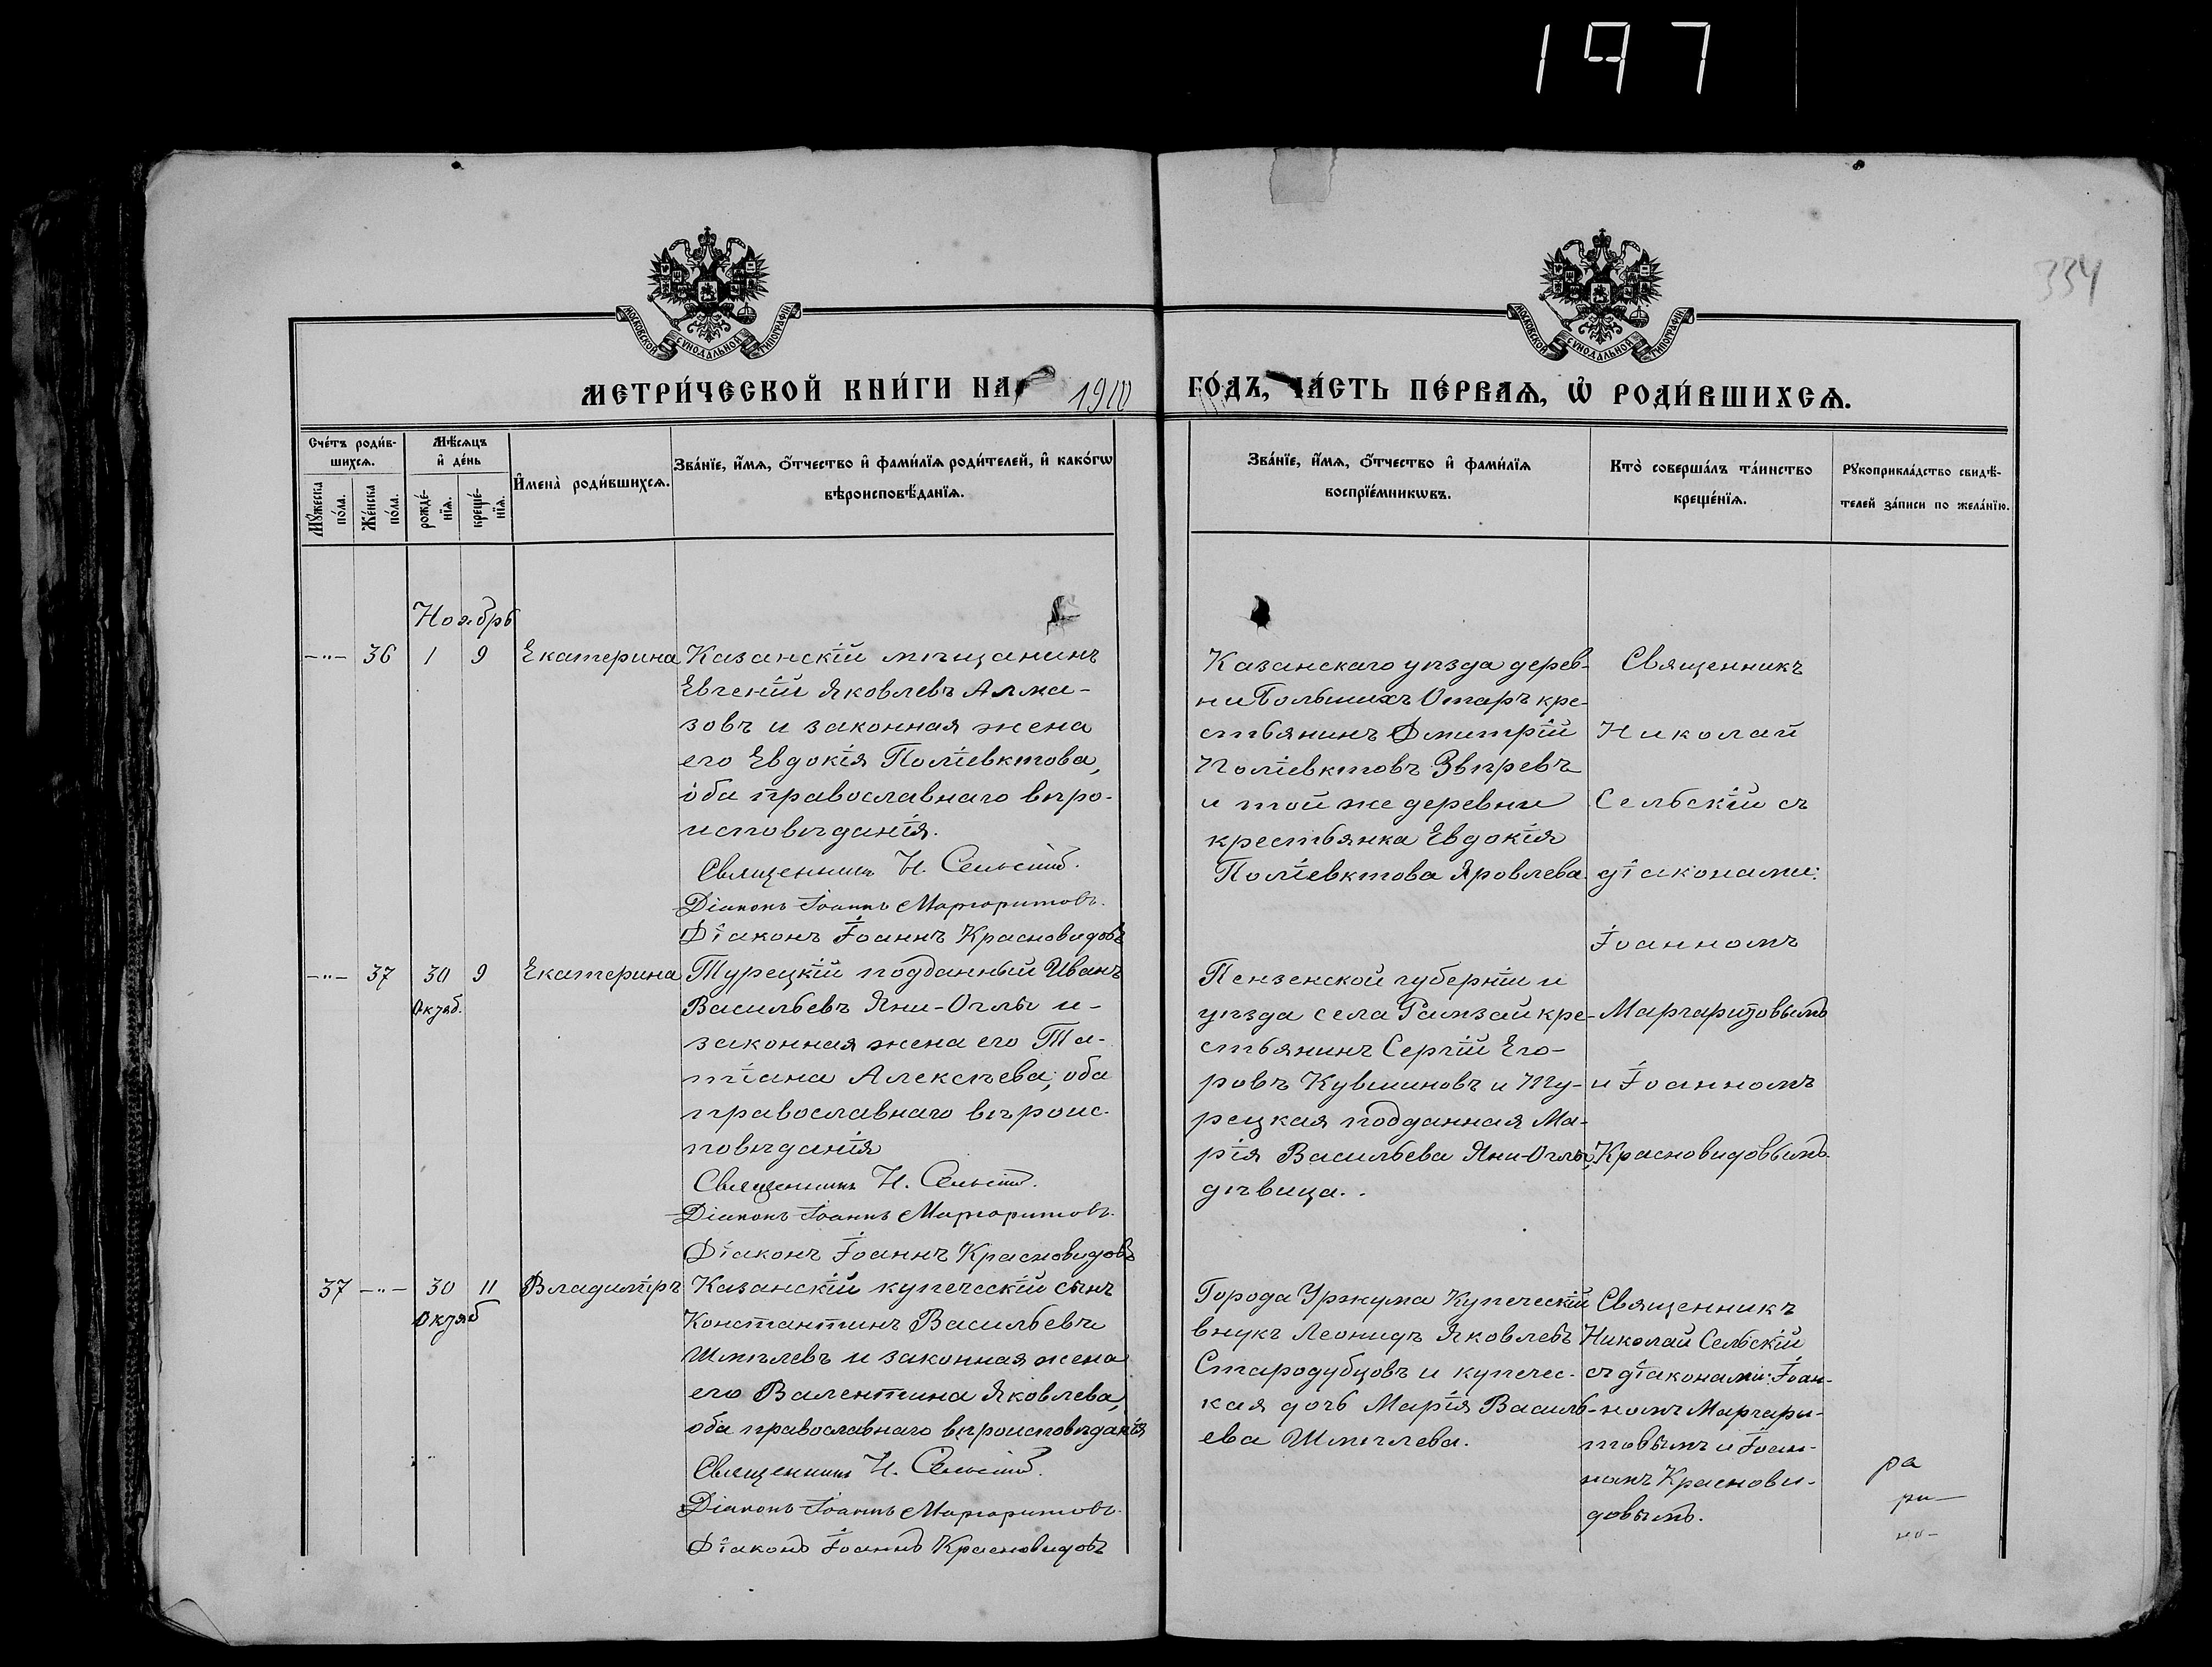 197
334
МОСКОВСКОЙ СУНОДАЛЬНОЙ ТИПОГРАФІИ
МОСКОВСКОЙ СУНОДАЛЬНОЙ ТИПОГРАФІИ
МЕТРИ́ЧЕСКОЙ КНИ́ГИ НА 1910 ГО́ДЪ, ЧА́СТЬ ПЕ́РВАѦ, Ѡ҆ РОДИ́ВШИХСѦ.
Сче́тъ роди́в-
шихсѧ.
Мꙋ́жеска по́ла.
Же́нска по́ла.
Мѣ́сѧцъ
и҆ де́нь
рожде́-нїѧ.
креще́-нїѧ.
И҆мена̀ роди́вшихсѧ.
Зва́нїе, и҆́мѧ, ѻ҆́тчество и҆ фами́лїѧ роди́телей, и҆ како́гѡ
вѣроисповѣ́данїѧ.
Зва́нїе, и҆́мѧ, ѻ҆́тчество и҆ фами́лїѧ
воспрїе́мникѡвъ.
Кто̀ соверша́лъ та́инство
креще́нїѧ.
Рꙋкоприкла́дство свидѣ́-
телей за́писи по жела́нїю.
Ноябрь
-"- 36 1 9 Екатерина
Казанскій мѣщанинъ
Евгеній Яковлевъ Алма-
зовъ и законная жена
его Евдокія Поліевктова,
оба православнаго вѣро-
исповѣданія.
Священникъ Н. Сельскій.
Діаконъ Іоаннъ Маргаритовъ.
Діаконъ Іоаннъ Красновидовъ
Казанскаго уѣзда дерев-
ни Большихъ Отаръ кре-
стьянинъ Дмитрій
Поліевктовъ Звѣревъ
и той же деревни
крестьянка Евдокія
Поліевктова Яровлева.
Священникъ
Николай
Сельскій съ
діаконами:
Іоанномъ
Маргаритовымъ
и Іоанномъ
Красновидовымъ.
-"- 37 30 9 Екатерина
Октяб.
Турецкій подданный Иванъ
Васильевъ Яни-Оглы и-
законная жена его Та-
тіана Алексѣева, оба
православнаго вѣроис-
повѣданія
Священникъ Н. Сельскій.
Діаконъ Іоаннъ Маргаритовъ.
Діаконъ Іоаннъ Красновидовъ
Пензенской губерніи и
уѣзда села Рамзай кре-
стьянинъ Сергій Его-
ровъ Кувшиновъ и Ту-
рецкая подданная Ма-
рія Васильева Яни-Оглы,
дѣвица..
37 -"- 30 11 Владиміръ
Октяб
Казанскій купеческій сынъ
Константинъ Васильевъ
Шмѣлевъ и законная жена
его Валентина Яковлева,
оба православнаго вѣроисповѣданія
Священникъ Н. Сельскій.
Діаконъ Іоаннъ Маргаритовъ.
Діаконъ Іоаннъ Красновидовъ
Города Уржума Купеческій
внукъ Леонидъ Яковлевъ
Стародубцовъ и купечес-
кая дочь Марія Василь-
ева Шмѣлева.
Священникъ
Николай Сельскій
съ діаконами: Іоан-
номъ Маргари-
товымъ и Іоан-
номъ Краснови-
довымъ.
ра
ри-
но-